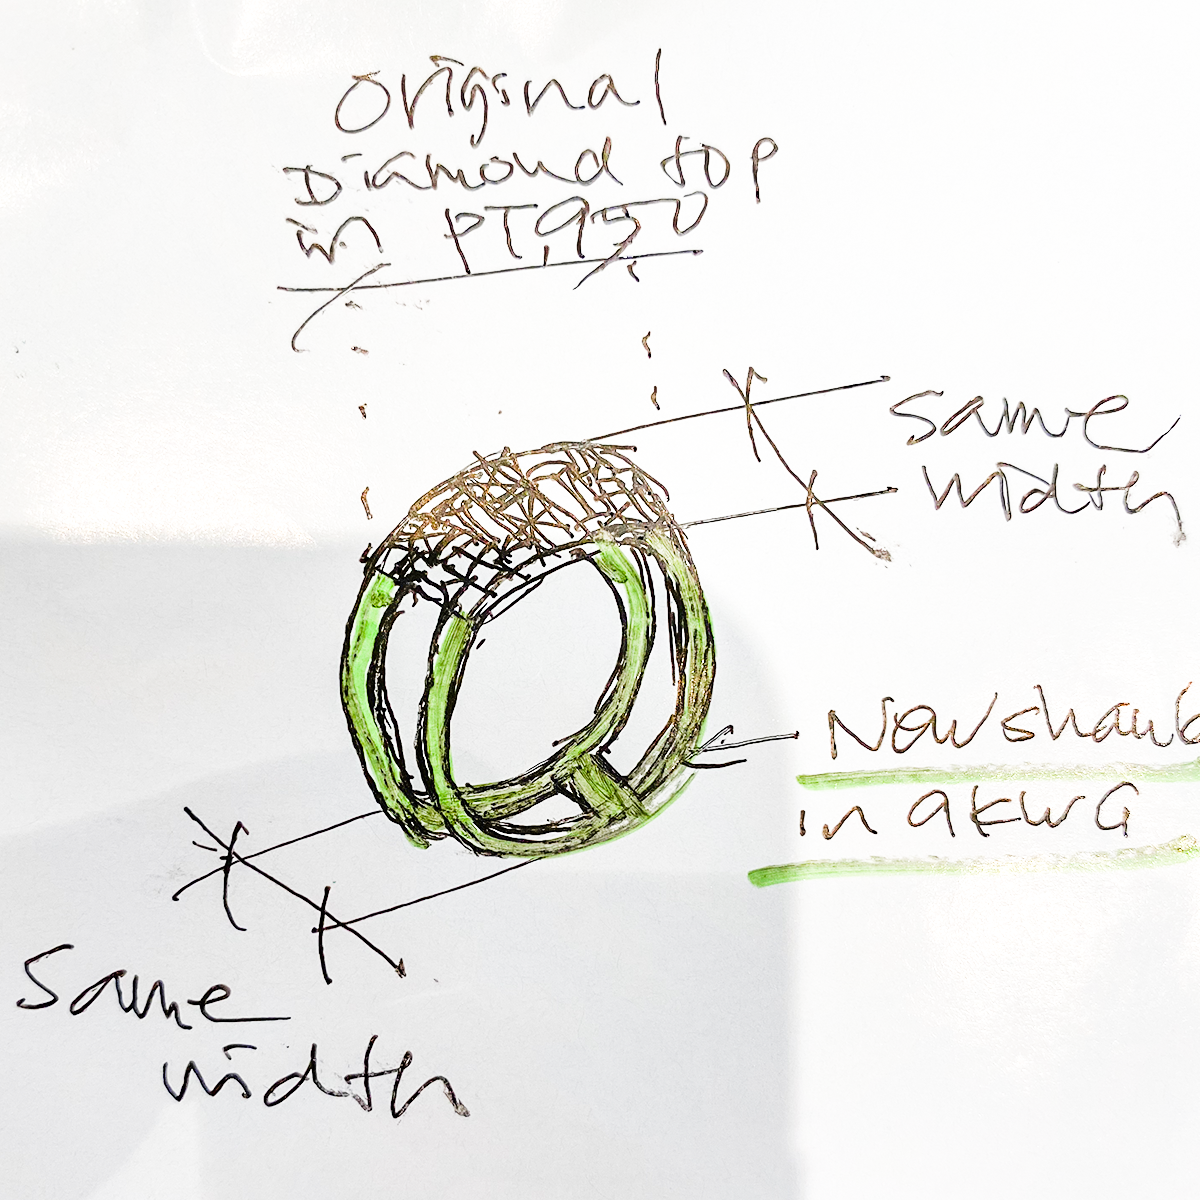 original
Diamond top
in PT950
same
width
New shank
in 9KWG
same
width